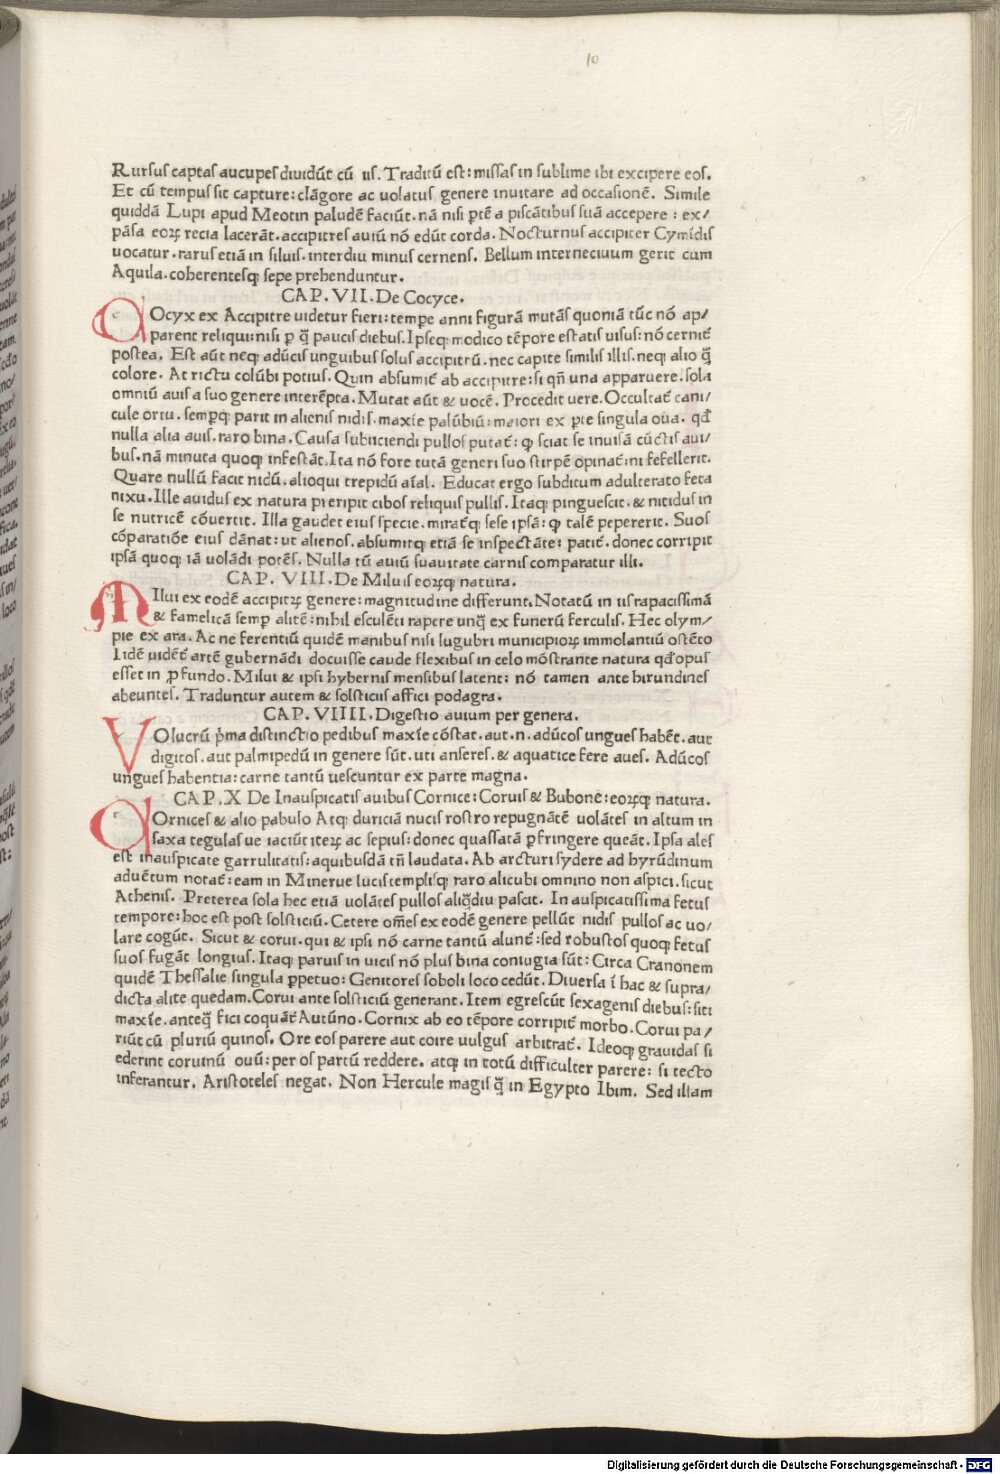 10
Rursus captas aucupes diuidūt cū iis. Traditū est: missas in sublime ibi excipere eos.
Et cū tempus sit capture: clāgore ac uolatus genere inuitare ad occasionē. Simile
quiddā Lupi apud Meotin paludē faciūt. nā nisi ptē a piscātibus suā accepere: ex/
pāsa eoꝝ recia lacerāt. accipitres auiū nō edūt corda. Nocturnus accipiter Cymidis
uocatur. rarus etiā in siluis. interdiu minus cernens. Bellum interneciuum gerit cum
Aquila. coherentesq̨ sepe prehenduntur.
CAP. VII. De Cocyce.
COcyx ex Accipitre uidetur fieri: tempe anni figurā mutās quoniā tūc nō ap/
parent reliqui: nisi ꝑ q̄ paucis diebus. Ipseq̨ modico tēpore estatis uisus: nō cernit̄
postea. Est aūt neq̨ adūcis unguibus solus accipitrū. nec capite similis illis. neq̨ alio q̄
colore. At rictu colūbi potius. Quin absumit̄ ab accipitre: si qn̄ una apparuere. sola
omniū auis a suo genere interēpta. Mutat aūt & uocē. Procedit uere. Occultat̄ cani/
cule ortu. sempq̨ parit in alienis nidis. maxīe palūbiū: maiori ex pte singula oua. qd̄
nulla alia auis. raro bina. Causa subiiciendi pullos putat̄: ꝙ sciat se inuisā cūctis aui/
bus. nā minuta quoq̨ infestāt. Ita nō fore tutā generi suo stirpē opinat̄: ni fefellerit.
Quare nullū facit nidū. alioqui trepidū aīal. Educat ergo subditum adulterato feta
nixu. Ille auidus ex natura preripit cibos reliquis pullis. Itaq̨ pinguescit. & nitidus in
se nutricē cōuertit. Illa gaudet eius specie. mirat̄q̨ sese ipsā: ꝙ talē pepererit. Suos
cōparatiōe eius dānat: ut alienos. absumitq̨ etiā se inspectāte: patit̄. donec corripit
ipsā quoq̨ iā uolādi potēs. Nulla tū auiū suauitate carnis comparatur illi.
CAP. VIII. De Miluis eoꝝq̨ natura.
MIlui ex eodē accipitꝝ genere: magnitudine differunt. Notatū in iis rapacissimā
& famelicā semꝑ alitē: nihil esculēti rapere unq̄ ex funerū ferculis. Hec olym/
pie ex ara. Ac ne ferentiū quidē manibus nisi lugubri municipioꝝ immolantiū ostēto
Iidē uident̄ artē gubernādi docuisse caude flexibus in celo mōstrante natura qd̄ opus
esset in ꝓfundo. Milui & ipsi hybernis mensibus latent: nō tamen ante hirundines
abeuntes. Traduntur autem & solsticiis affici podagra.
CAP. VIIII. Digestio auium per genera.
VOlucrū p̄ma distinctio pedibus maxīe cōstat. aut .n. adūcos ungues habēt. aut
digitos. aut palmipedū in genere sūt. uti anseres. & aquatice fere aues. Adūcos
ungues habentia: carne tantū uescuntur ex parte magna.
CAP. X De Inauspicatis auibus Cornice: Coruis & Bubone: eoꝝq̨ natura.
COrnices & alio pabulo Atq̨ duriciā nucis rostro repugnātē uolātes in altum in
saxa tegulas ue iaciūt iteꝝ ac sepius: donec quassatā ꝑfringere queāt. Ipsa ales
est inauspicate garrulitatis: a quibusdā tn̄ laudata. Ab arcturi sydere ad hyrūdinum
aduētum notat̄: eam in Minerue lucis templisq̨ raro alicubi omnino non aspici. sicut
Athenis. Preterea sola hec etiā uolātes pullos aliq̄diu pascit. In auspicatissima fetus
tempore: hoc est post solsticiū. Cetere om̄es ex eodē genere pellūt nidis pullos ac uo/
lare cogūt. Sicut & corui. qui & ipsi nō carne tantū alunt̄: sed robustos quoq̨ fetus
suos fugāt longius. Itaq̨ paruis in uicis nō plus bina coniugia sūt: Circa Cranonem
quidē Thessalie singula ꝑpetuo: Genitores soboli loco cedūt. Diuersa ī hac & supra/
dicta alite quedam. Corui ante solsticiū generant. Item egrescūt sexagenis diebus: siti
maxīe. anteq̄ fici coquāt̄ Autūno. Cornix ab eo tēpore corripit̄ morbo. Corui pa/
riūt cū pluriū quinos. Ore eos parere aut coire uulgus arbitrat̄. Ideoq̨ grauidas si
ederint coruinū ouū: per os partū reddere. atq̨ in totū difficulter parere: si tecto
inferantur. Aristoteles negat. Non Hercule magis q̄ in Egypto Ibim. Sed illam
Digitalisierung gefördert durch die Deutsche Forschungsgemeinschaft - DFG